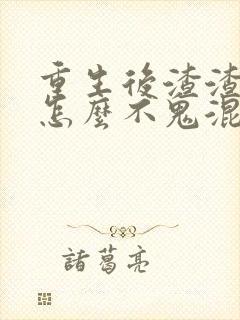 重生後渣渣
怎麼不鬼混
諸葛亮